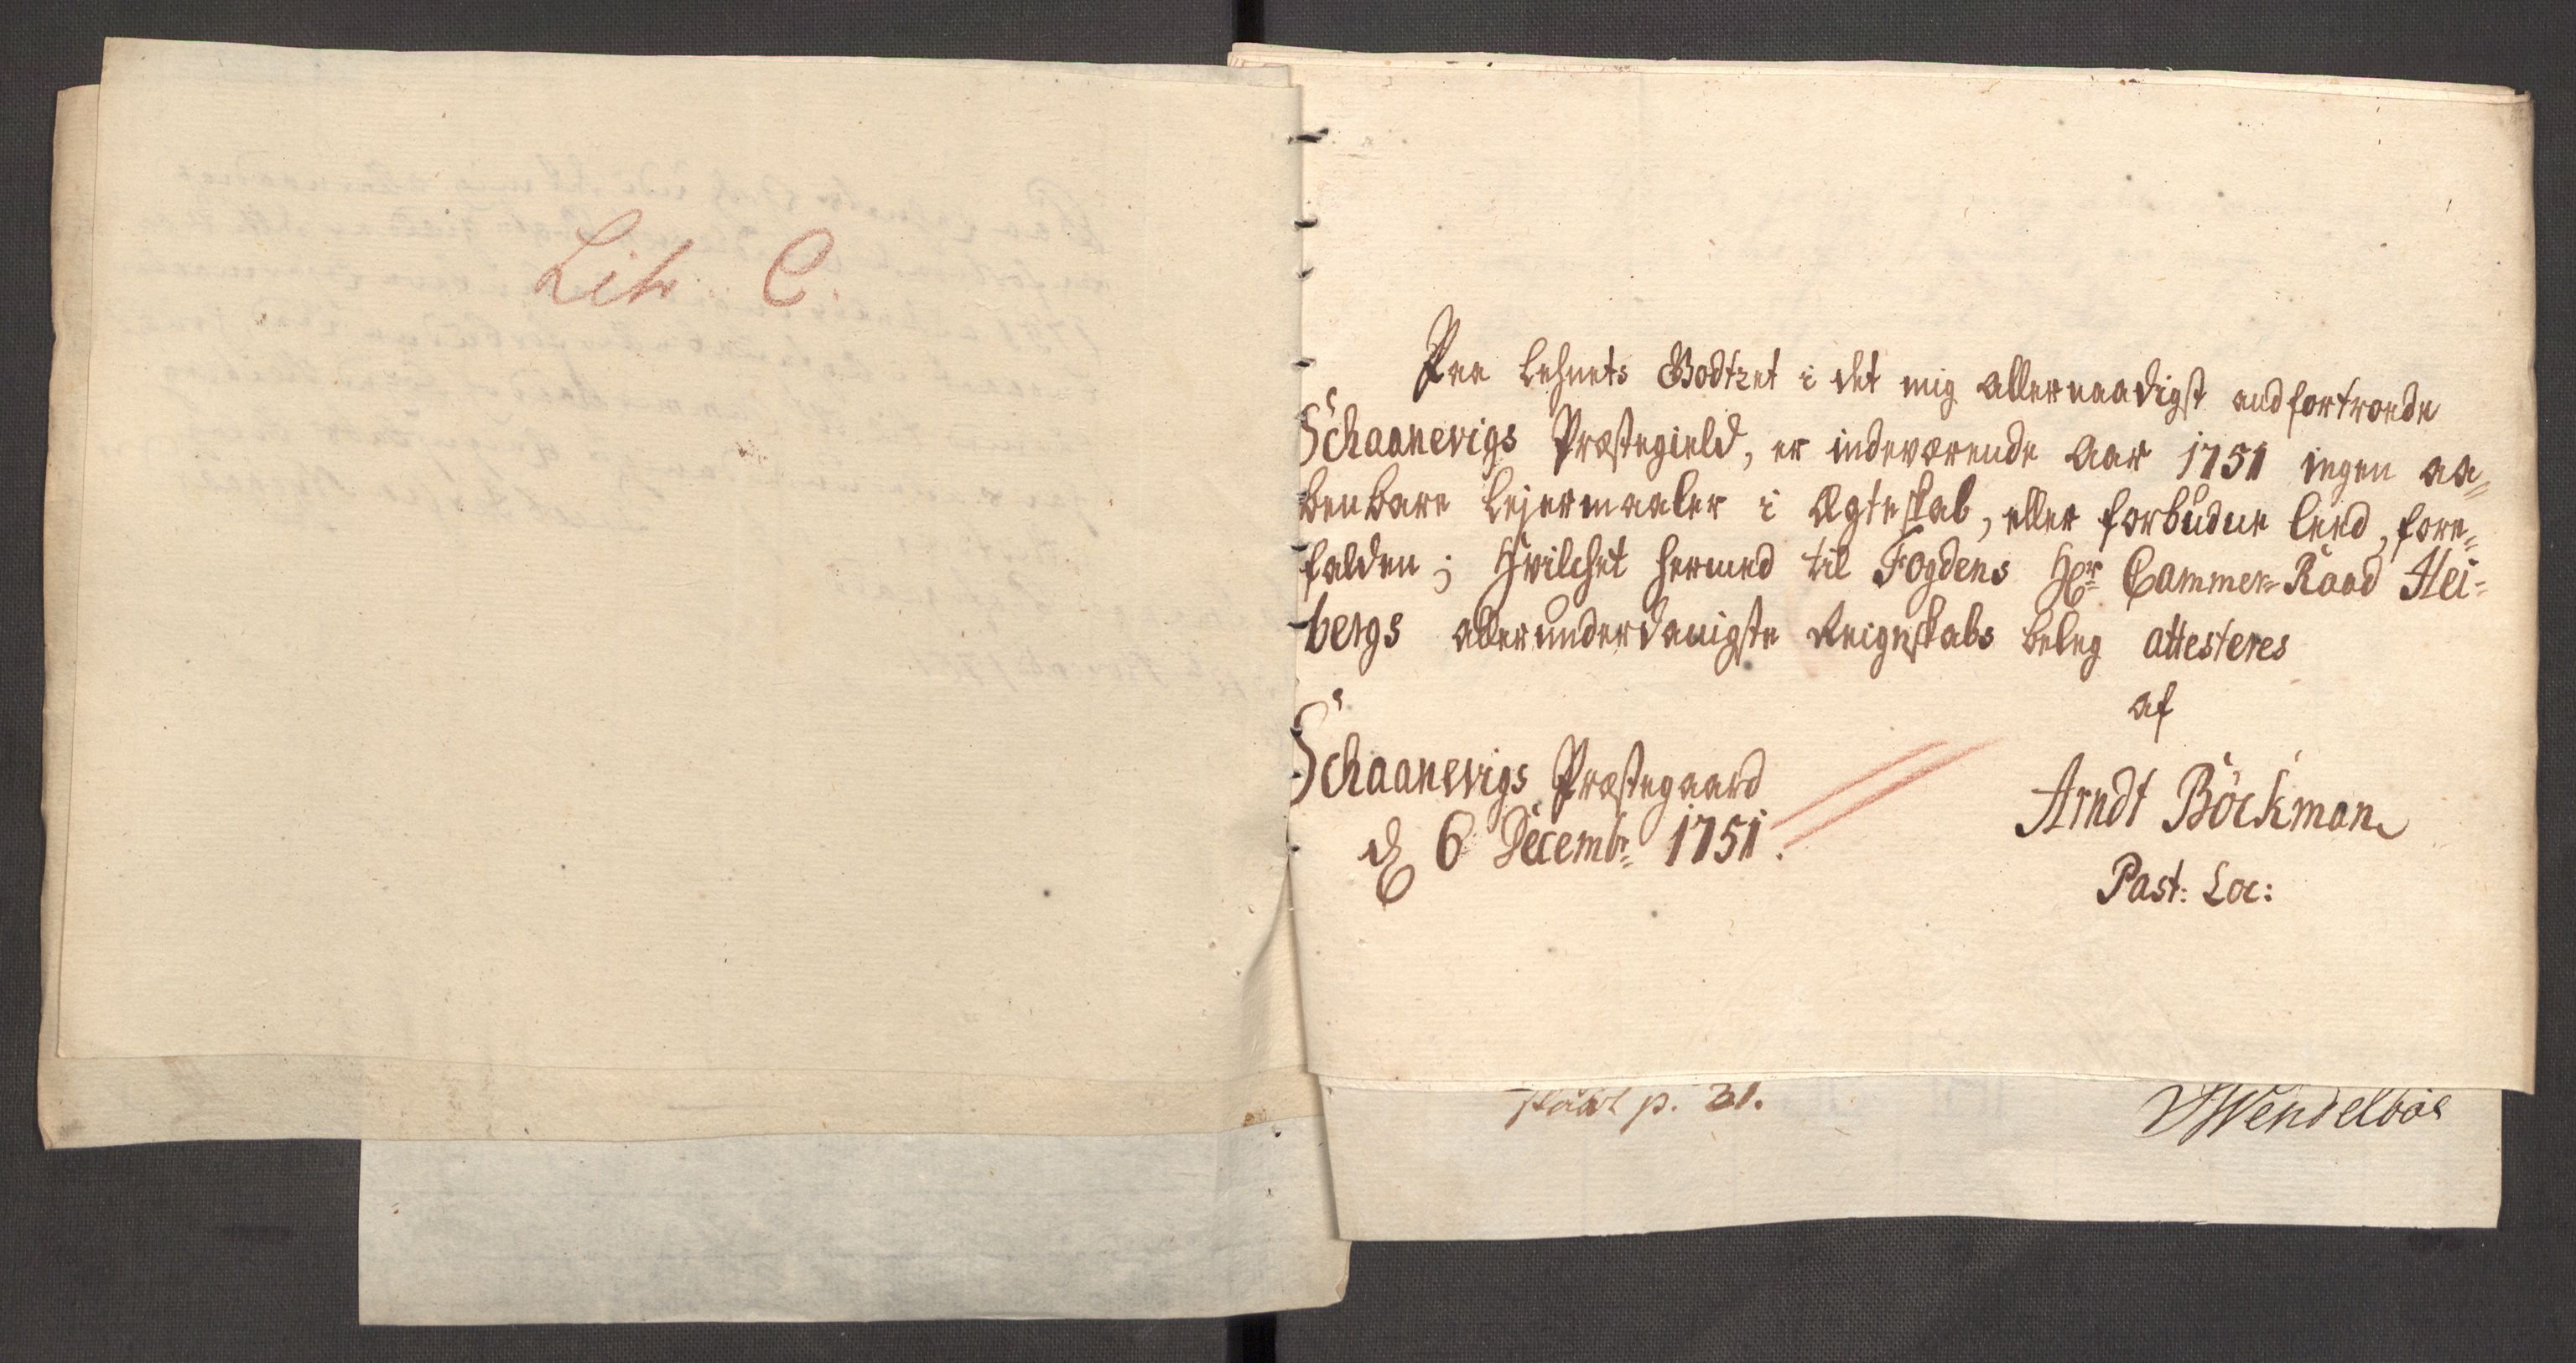 Litr. C.
Paa Lehnets Godtzet i det mig allernaadigst andfortroede
Schaanevigs Præstegield, er indeværende Aar 1751 ingen aa=
benbare Lejermaaler i Ægteskab, eller forbudne leed, fore=
falden; hvilchet hermed til Fogdens Hr. Cammer=Raad Hei=
bergs allerunderdanigste Reignskabs beleg attesteres
af
Schaanevigs Præstegaard
d. 6 Decembr: 1751.
Arndt Böckman
Past: Loc:
p. 31.
Wendelboe